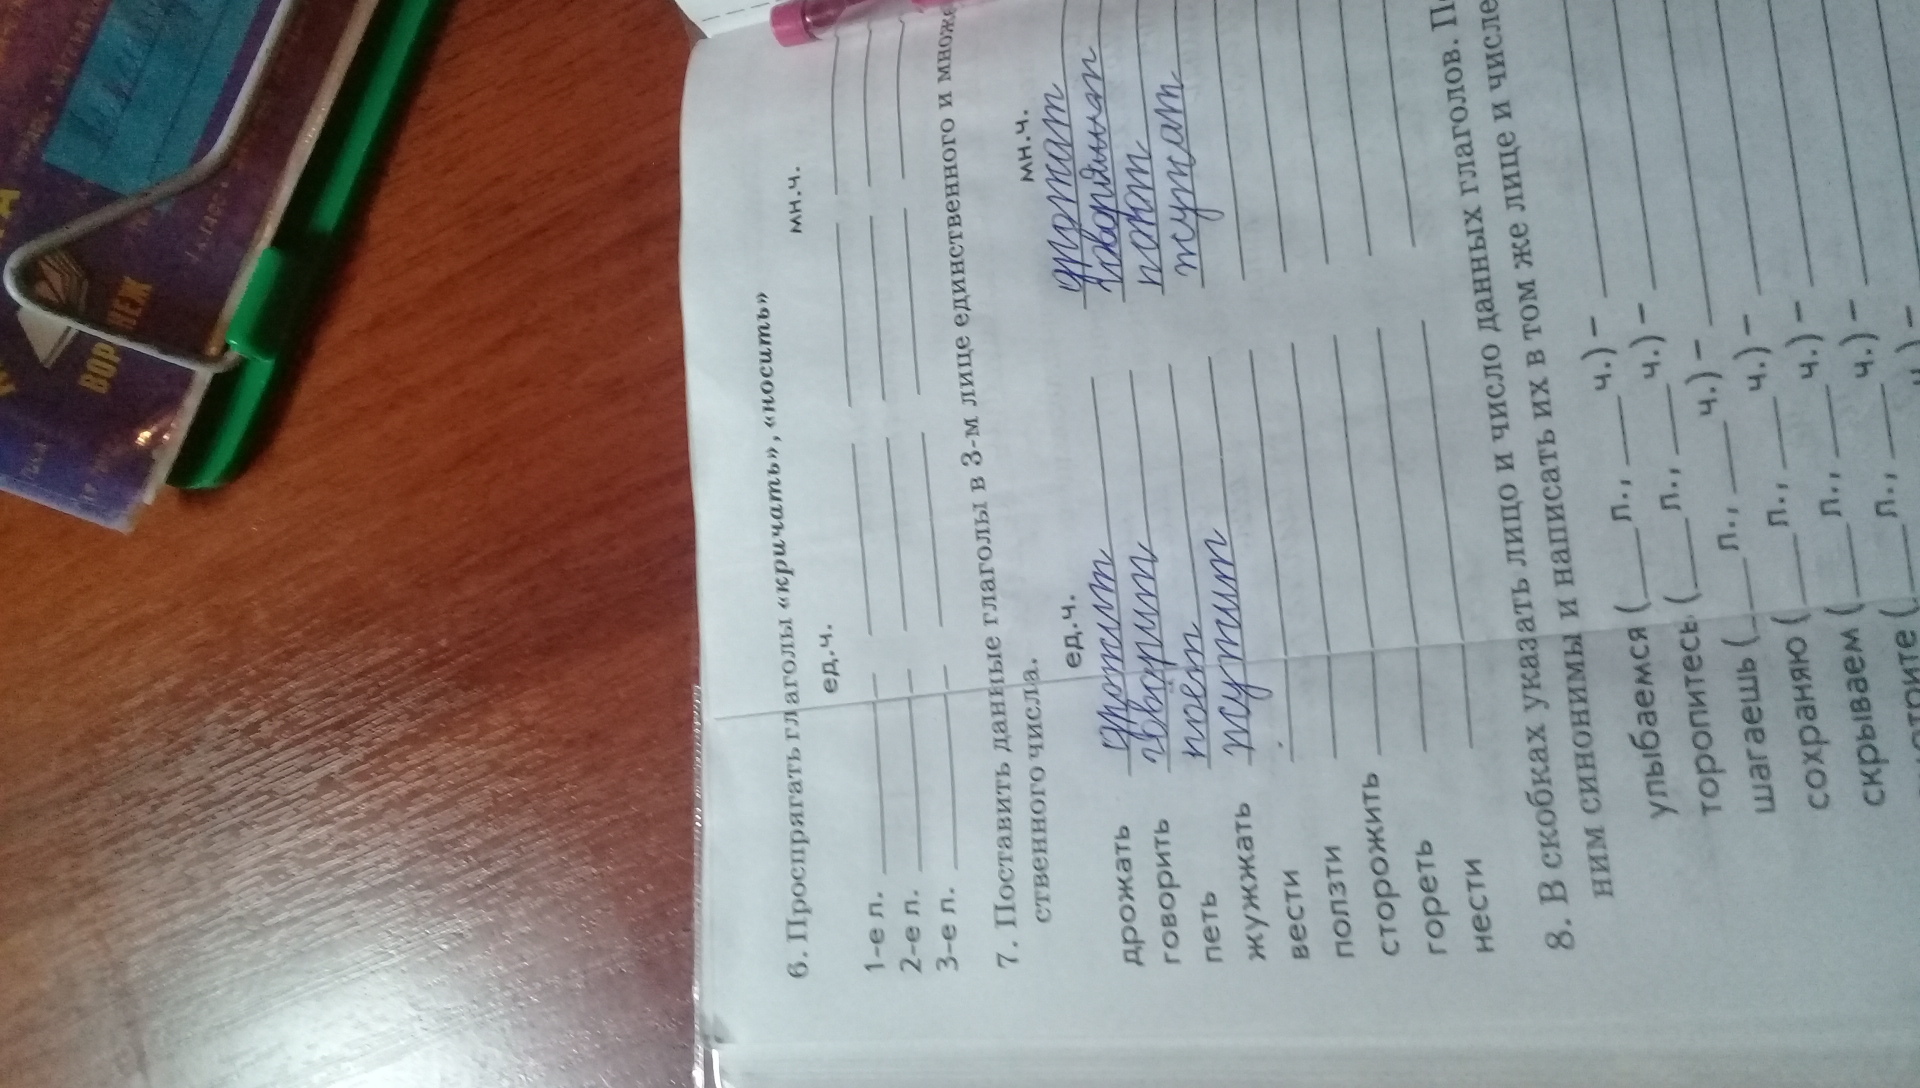 ВОРОНЕЖ
6. Проспрягать глаголы «кричать», «носить»
ед.ч. мн.ч.
1-е л.
2-е л.
3-е л.
7. Поставить данные глаголы в 3-м лице единственного и множе
ственного числа.
ед.ч. мн.ч.
дрожать дрожит дрожат
говорить говорит
петь поет поют
жужжать жужжит жужжат
вести
ползти
сторожить
гореть
нести
8. В скобках указать лицо и число данных глаголов. П
ним синонимы и написать их в том же лице и числе
улыбаемся (___л., ___ ч.) –
торопитесь (___л., ___ ч.) –
шагаешь (___л., ___ ч.) –
сохраняю (___л., ___ ч.) –
скрываем (___л., ___ ч.) –